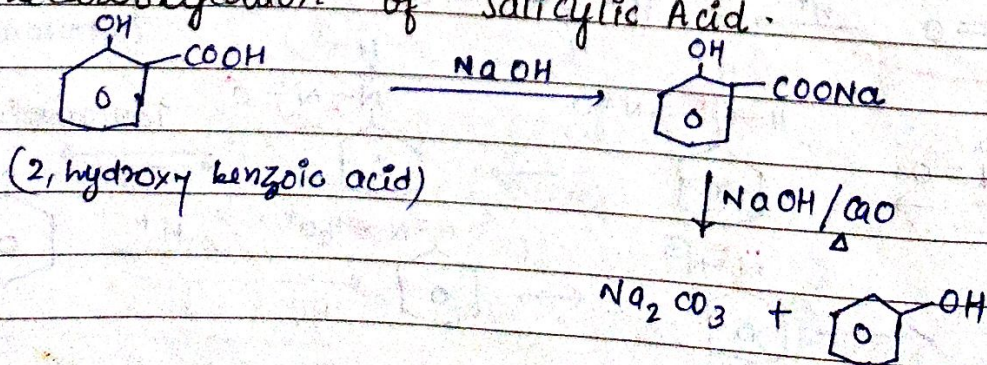 of Salicylic Acid.
OH
COOH
NaOH
OH
COONa
(2, hydroxy benzoic acid)
NaOH/CaO
Δ
Na2CO3 + OH